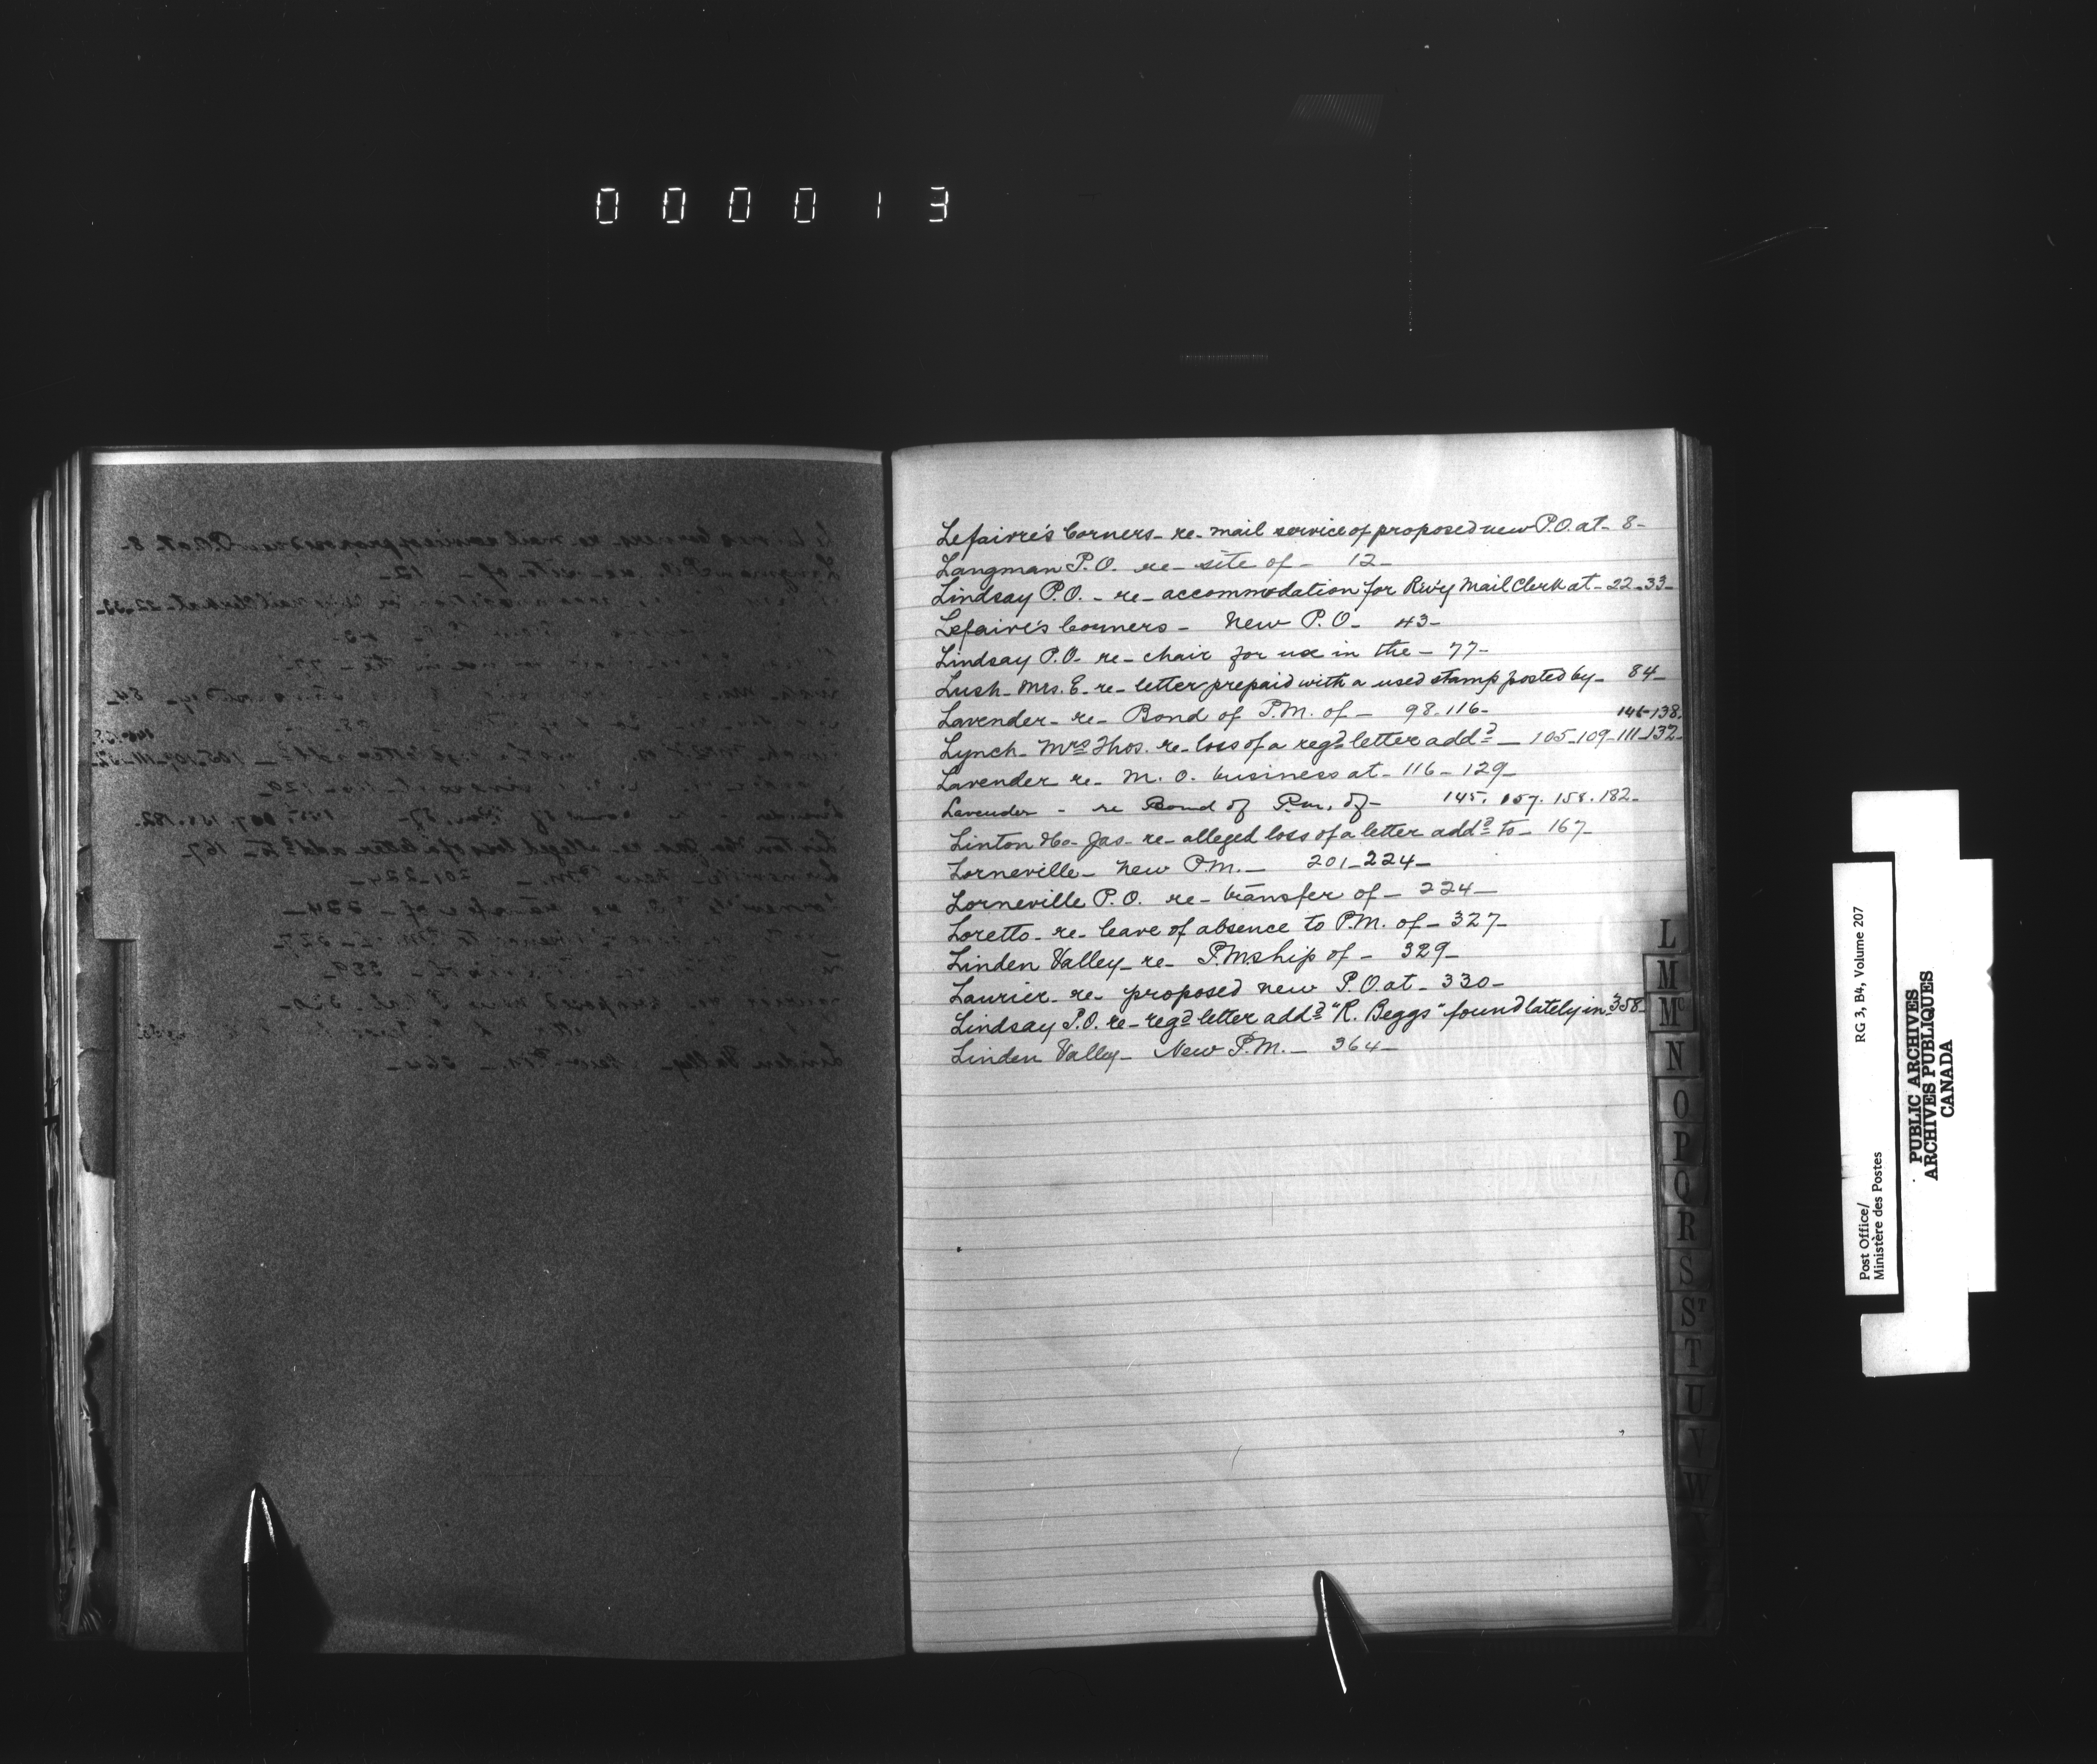 000013
Lefaivre's Corners - re - mail service of proposed new P.O. at - 8 -
Langman P.O. re - site of - 12 -
Lindsay P.O. - re - accommodation for R'w'y Mail Clerk at - 22 - 33 -
Lefaive's Corners - New P.O - 43 -
Lindsay P.O. re - chair for use in the - 77 -
Lush - Mrs. E - re - letter prepaid with a used stamp posted by - 84 -
Lavender - re - Bond of P.M. of - 98 - 116 -
146 - 138.
Lynch - Mrs Thos. re - loss of a regd letter addd - 105 - 109 - 111 - 132 -
Lavender re - M. O. business at - 116 - 129 -
Lavender - re Bond of P.m. of - 145. 157. 158. 182 -
Linton Jas - re - alleged loss of a letter addd to - 167 -
Lorneville - New P.M. - 201 - 224 -
Lorneville P.O. re - transfer of - 224 -
Loretto - re - leave of absence to P.M. of - 327 -
Linden Valley - re - P.M.ship of - 329 -
Laurier - re - proposed new P.O. at - 330 -
Lindsay P.O. re - regd letter addd "R. Beggs" found lately in - 358 -
Linden Valley - New P.M. - 364 -
L
M
Mc
N
O
P
Q
R
S
ST
T
U
V
W
Post Office/
Ministère des Postes
RG 3, B4, Volume 207
PUBLIC ARCHIVES
ARCHIVES PUBLIQUES
CANADA